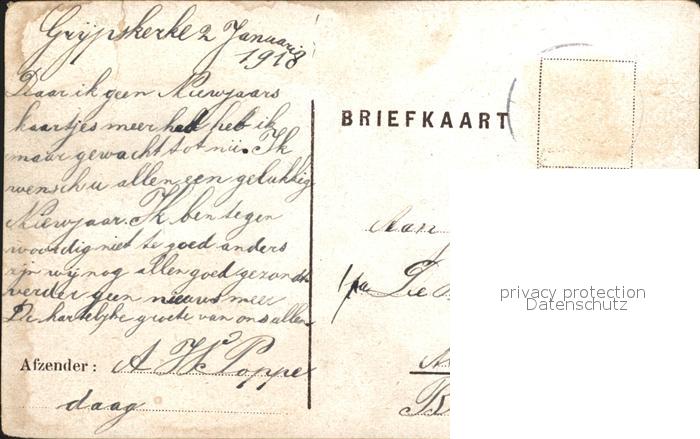 Grijpskerke 2 Januarie
1918
Daar ik geen Niewjaars
kaartjes meer had heb ik
maar gewacht tot nu. Ik
wensch u allen een gelukkig
Niewjaar. Ik ben tegen
woordig niet te goed anders
zijn wij nog allen goed gezond
verder geen nieuws meer
De hartelijke groete van ons allen
Afzender: A Poppe
daag
BRIEFKAART
Aan
De
privacy protection
Datenschutz